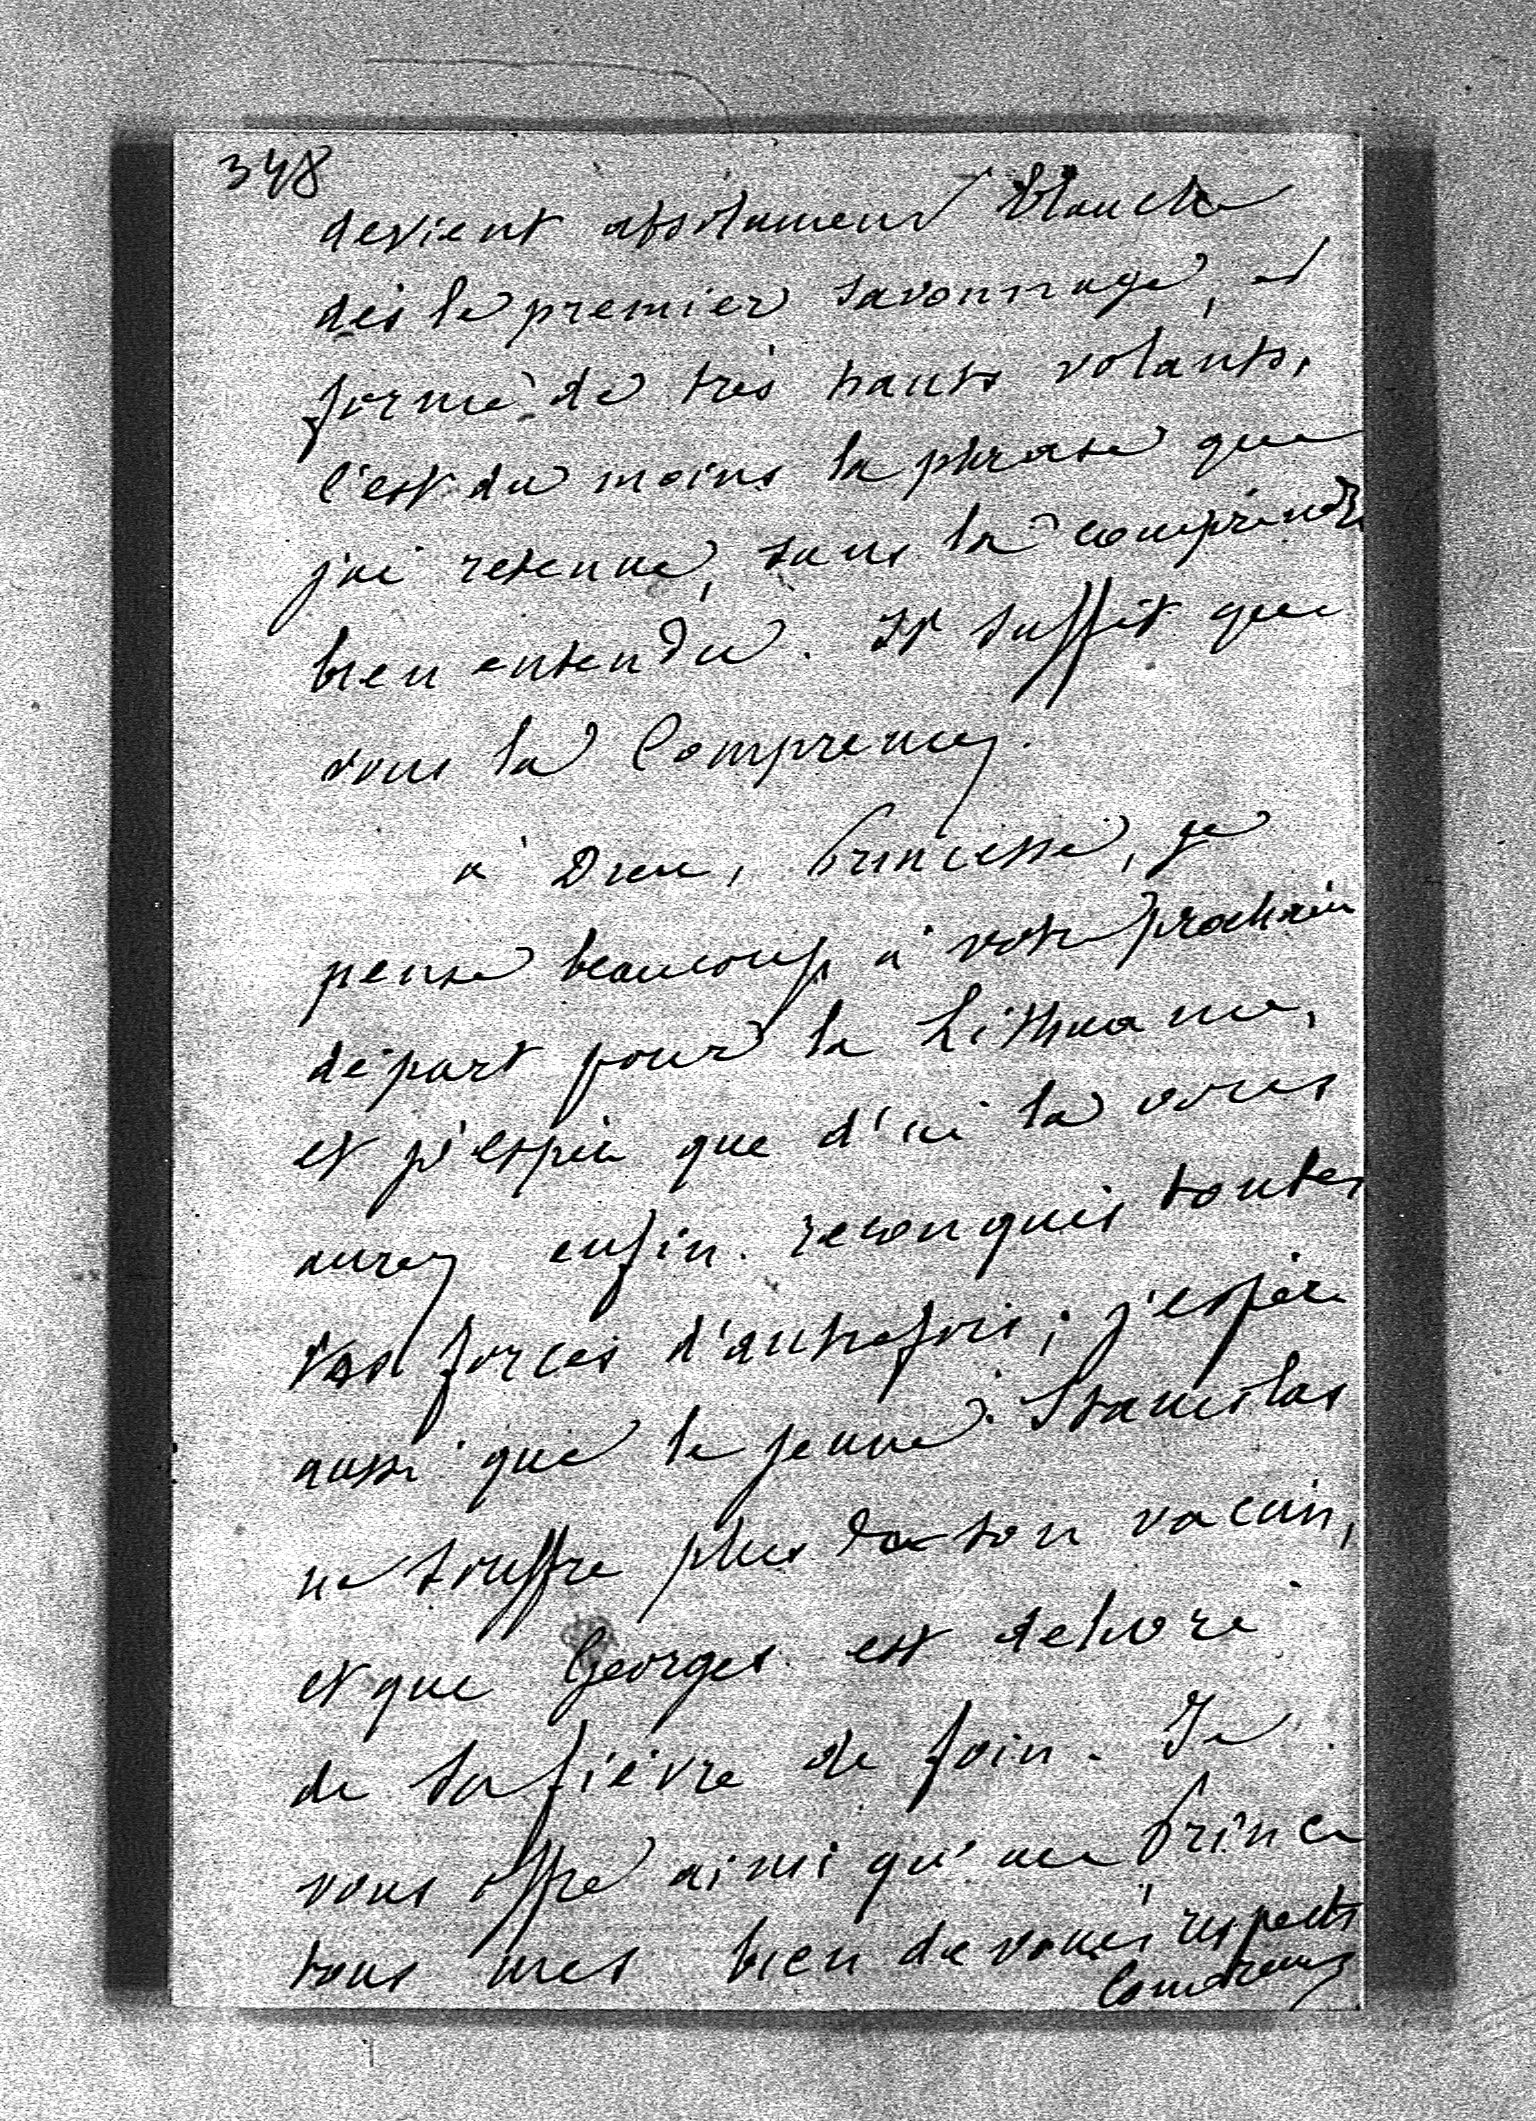 348
devient absolument blanche
dès le premier savonnage, et
formé de très hauts volants,
c'est du moins la phrase que
j'ai retenue, sans la comprendre
bien entendu. Il suffit que
vous la Compreniez.
à Dieu, Princesse, je
pense beaucoup à votre prochain
départ pour la Lithuanie,
et j'espère que d'ici là vous
aurez enfin reconquis toutes
vos forces d'autrefois; j'espère
aussi que le jeune Stanislas
ne souffre plus de son vaccin,
et que Georges est délivré
de sa fièvre de foin. Je
vous offre ainsi qu'au Prince
tous mes bien dévoués respects